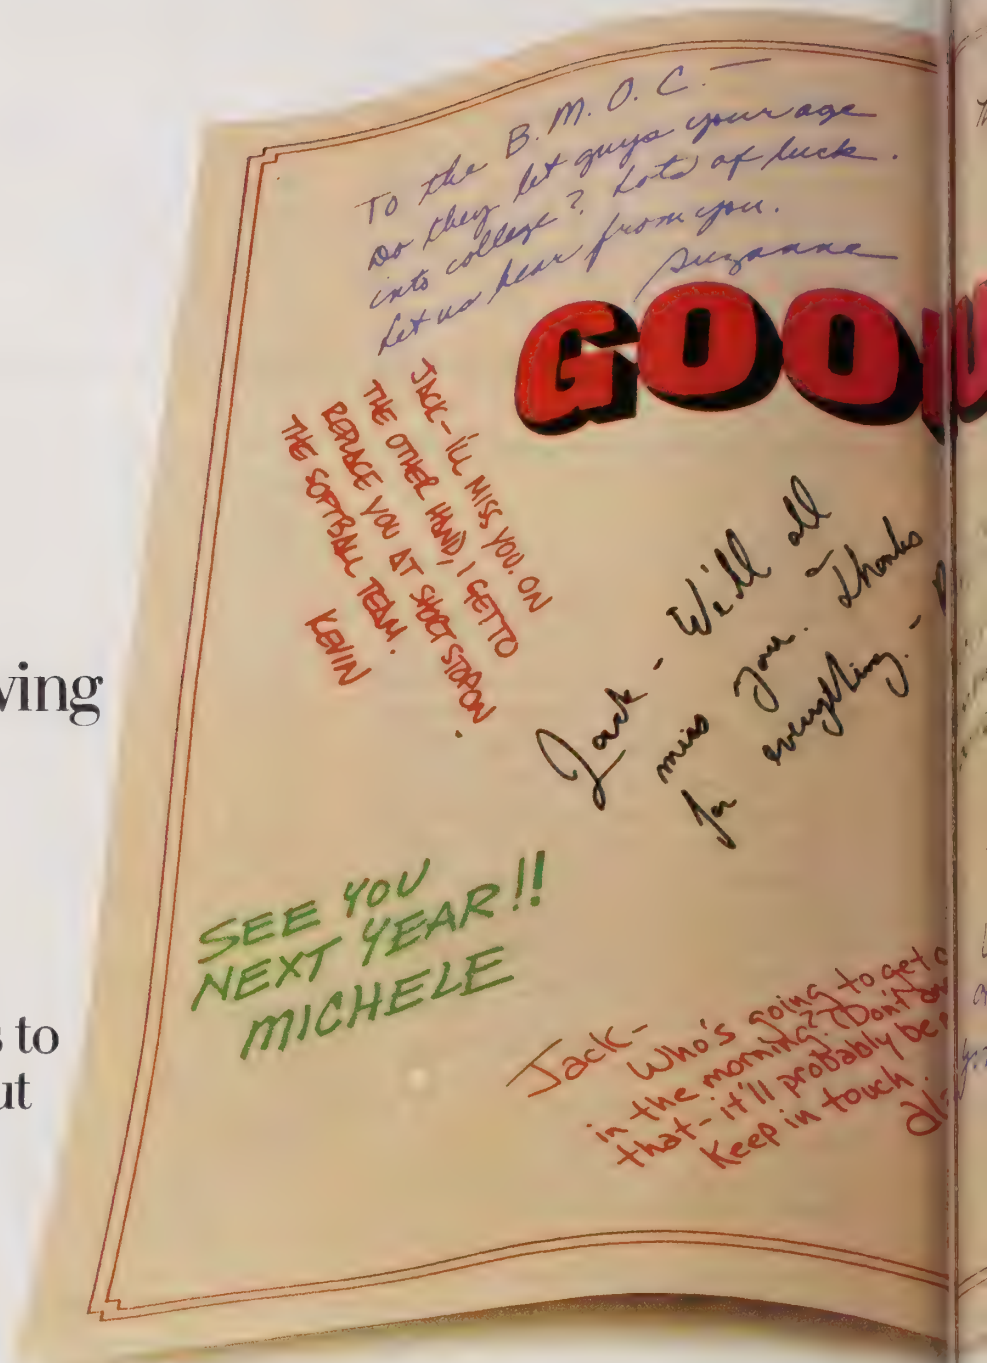 To the B.M.O.C. —
Do they let guys your age
into college? Lots of luck.
Let us hear from you.
Suzanne
GOO
JACK - I'LL MISS YOU. ON
THE OTHER HAND, I GET TO
REPLACE YOU AT SHORT STOP ON
THE SOFTBALL TEAM.
KEVIN
Jack - We'll all
miss you. Thanks
for everything. -
ving
SEE YOU
NEXT YEAR!!
MICHELE
s to
ut
Jack-
Who's going to get
in the morning? (Don't
that - it'll probably be
Keep in touch.